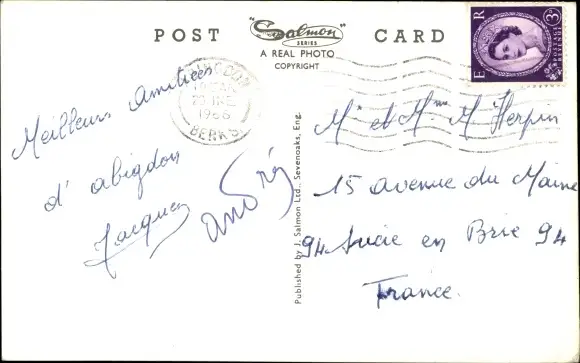 POST CARD
"Salmon"
SERIES
A REAL PHOTO
COPYRIGHT
E R
3D
POSTAGE
1966
BERKS
Meilleurs Amitiées
d' abigdon
Jacques
André
Published by J. Salmon Ltd., Sevenoaks, Eng.
Mr et Mme M Herpin
15 avenue du Maine
94 Sucie en Brie 94
France.